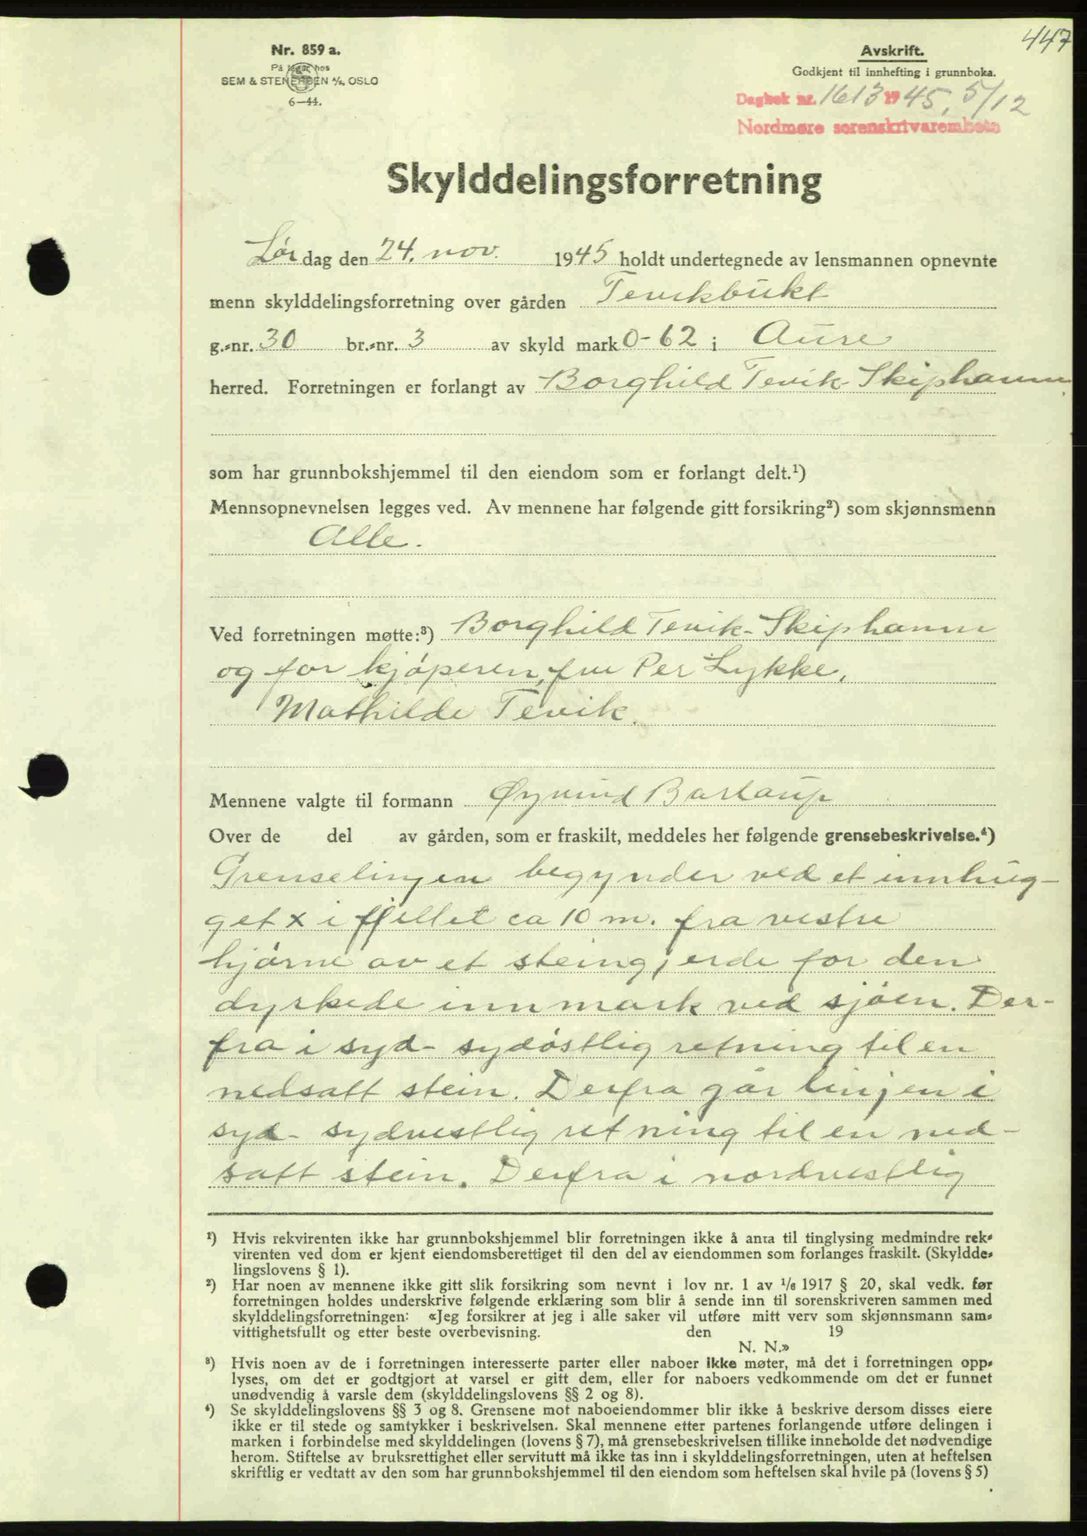 447
Nr. 859 a.
På lager hos
SEM & STENERSEN A/S, OSLO
6—44.
Avskrift.
Godkjent til innhefting i grunnboka.
Dagbok nr. 1613 1945, 5/12
Nordmøre sorenskrivarembete
Skylddelingsforretning
Lørdag den 24. nov. 1945 holdt undertegnede av lensmannen opnevnte
menn skylddelingsforretning over gården Tevikbukt
g.-nr. 30 br.-nr. 3 av skyld mark 0-62 i Aure
herred. Forretningen er forlangt av Borghild Tevik-Skiphamn
som har grunnbokshjemmel til den eiendom som er forlangt delt.¹)
Mennsopnevnelsen legges ved. Av mennene har følgende gitt forsikring²) som skjønnsmenn
Alle.
Ved forretningen møtte:³) Borghild Tevik-Skiphamn
og for kjøperen, fru Per Lykke,
Mathilde Tevik.
Mennene valgte til formann Øyvind
Over de del av gården, som er fraskilt, meddeles her følgende grensebeskrivelse.⁴)
Grenselinjen begynder ved et innhug-
get x i fjellet ca 10 m. fra vestre
hjørne av et steingjerde for den
dyrkede innmark ved sjøen. Der-
fra i syd- sydøstlig retning til en
nedsatt stein. Derfra går linjen i
syd- sydvestlig retning til en ned-
satt stein. Derfra i nordvestlig
¹) Hvis rekvirenten ikke har grunnbokshjemmel blir forretningen ikke å anta til tinglysing medmindre rek-
virenten ved dom er kjent eiendomsberettiget til den del av eiendommen som forlanges fraskilt. (Skyldde-
lingslovens § 1).
²) Har noen av mennene ikke gitt slik forsikring som nevnt i lov nr. 1 av 1/6 1917 § 20, skal vedk. før
forretningen holdes underskrive følgende erklæring som blir å sende inn til sorenskriveren sammen med
skylddelingsforretningen: «Jeg forsikrer at jeg i alle saker vil utføre mitt verv som skjønnsmann sam-
vittighetsfullt og etter beste overbevisning. den 19
N. N.»
³) Hvis noen av de i forretningen interesserte parter eller naboer ikke møter, må det i forretningen opp-
lyses, om det er godtgjort at varsel er gitt dem, eller for naboers vedkommende om det er funnet
unødvendig å varsle dem (skylddelingslovens §§ 2 og 8).
⁴) Se skylddelingslovens §§ 3 og 8. Grensene mot naboeiendommer blir ikke å beskrive dersom disses eiere
ikke er til stede og samtykker i beskrivelsen. Skal mennene etter partenes forlangende utføre delingen i
marken i forbindelse med skylddelingen (lovens § 7), må grensebeskrivelsen tillike inneholde det nødvendige
herom. Stiftelse av bruksrettighet eller servitutt må ikke tas inn i skylddelingsforretningen, uten at heftelsen
skriftlig er vedtatt av den som har grunnbokshjemmel til den eiendom som heftelsen skal hvile på (lovens § 5)